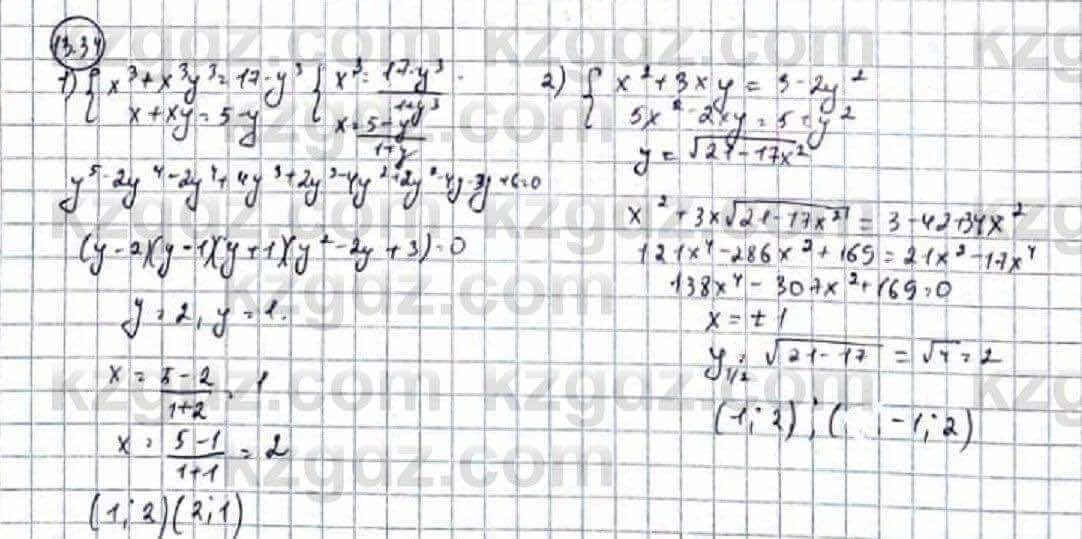 13.34
1) { x³ + x³y³ = 17 - y³ { x³ = 17-y³ / 1+y³
x + xy = 5 - y x = 5-y / 1+y
y⁵ - 2y⁴ - 2y⁴ + 4y³ + 2y³ - 4y² + 2y² - 4y - 3y + 6 = 0
(y - 2)(y - 1)(y + 1)(y² - 2y + 3) = 0
y = 2, y = 1.
x = 5-2 / 1+2 = 1
x = 5-1 / 1+1 = 2
(1; 2)(2; 1)
2) { x² + 3xy = 3 - 2y²
5x² - 2xy = 5 + y²
y = √21-17x²
x² + 3x√21-17x² = 3 - 42+34x²
121x⁴ - 286x² + 169 = 21x² - 17x⁴
138x⁴ - 307x² + 169 = 0
x = ± 1
y₁/₂ = √21-17 = √4 = 2
(1; 2); ( -1; 2)
kzgdz.com